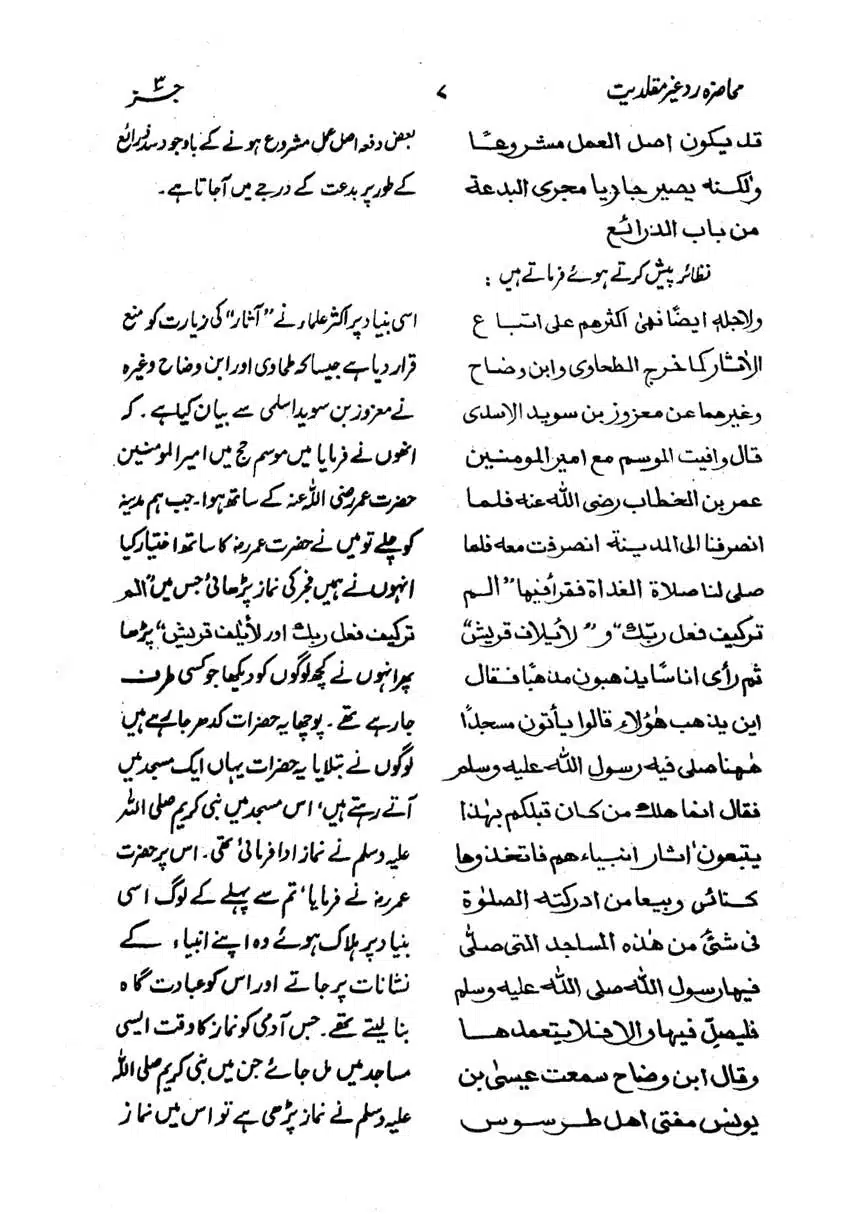 محاضرہ رد غیر مقلدیت
۷
جز ۳
قد يكون اصل العمل مشروعًا
ولكنه يصير جاريا مجرى البدعة
من باب الذرائع
بعض دفعہ اصل عمل مشروع ہونے کے باوجود سد ذرائع
کے طور پر بدعت کے درجے میں آجاتا ہے۔
نظائر پیش کرتے ہوئے فرماتے ہیں:
ولاجله ايضًا نهىٰ اكثرهم على اتباع
الأثار كما خرج الطحاوى وابن وضاح
وغيرهما عن معزوز بن سويد الاسدى
قال وافيت الموسم مع امير المومنين
عمر بن الخطاب رضى الله عنه فلما
انصرفنا الى المدينة انصرفت معه فلما
صلى لنا صلاة الغداة فقرأ فيها "الم
تركيف فعل ربّك" و "لأيلاف قريش"
ثم رأى اناسًا يذهبون مذهبًا فقال
اين يذهب هٰؤلاء قالوا يأتون مسجدًا
هٰهنا صلى فيه رسول الله عليه وسلم
فقال انما هلك من كان قبلكم بهٰذا
يتبعون اٰثار انبياءهم فاتخذوها
كنائس وبيعا من ادركته الصلوٰة
فى شئ من هٰذه المساجد التى صلّٰى
فيها رسول الله صلى الله عليه وسلم
فليصلّ فيها والا فلا يتعمدها
وقال ابن وضاح سمعت عيسىٰ بن
يونس مفتى اهل طرسوس
اسی بنیاد پر اکثر علماء نے "آثار" کی زیارت کو منع
قرار دیا ہے جیسا کہ طحاوی اور ابن وضاح وغیرہ
نے معزوز بن سوید اسلمی سے بیان کیا ہے۔ کہ
انھوں نے فرمایا میں موسم حج میں امیر المومنین
حضرت عمر رضی اللہ عنہ کے ساتھ ہوا۔ جب ہم مدینہ
کو چلے تو میں نے حضرت عمرؓ کا ساتھ اختیار کیا
انہوں نے ہمیں فجر کی نماز پڑھائی جس میں "الم
ترکیف فعل ربک اور لأیلٰف قریش" پڑھا
پھر انہوں نے کچھ لوگوں کو دیکھا جو کسی طرف
جارہے تھے۔ پوچھا یہ حضرات کدھر جارہے ہیں
لوگوں نے بتلایا یہ حضرات یہاں ایک مسجد میں
آتے رہتے ہیں، اس مسجد میں نبی کریم صلی اللہ
علیہ وسلم نے نماز ادا فرمائی تھی۔ اس پر حضرت
عمرؓ نے فرمایا، تم سے پہلے کے لوگ اسی
بنیاد پر ہلاک ہوئے وہ اپنے انبیاء کے
نشانات پر جاتے اور اس کو عبادت گاہ
بنا لیتے تھے۔ جس آدمی کو نماز کا وقت ایسی
مساجد میں مل جائے جن میں نبی کریم صلی اللہ
علیہ وسلم نے نماز پڑھی ہے تو اس میں نماز